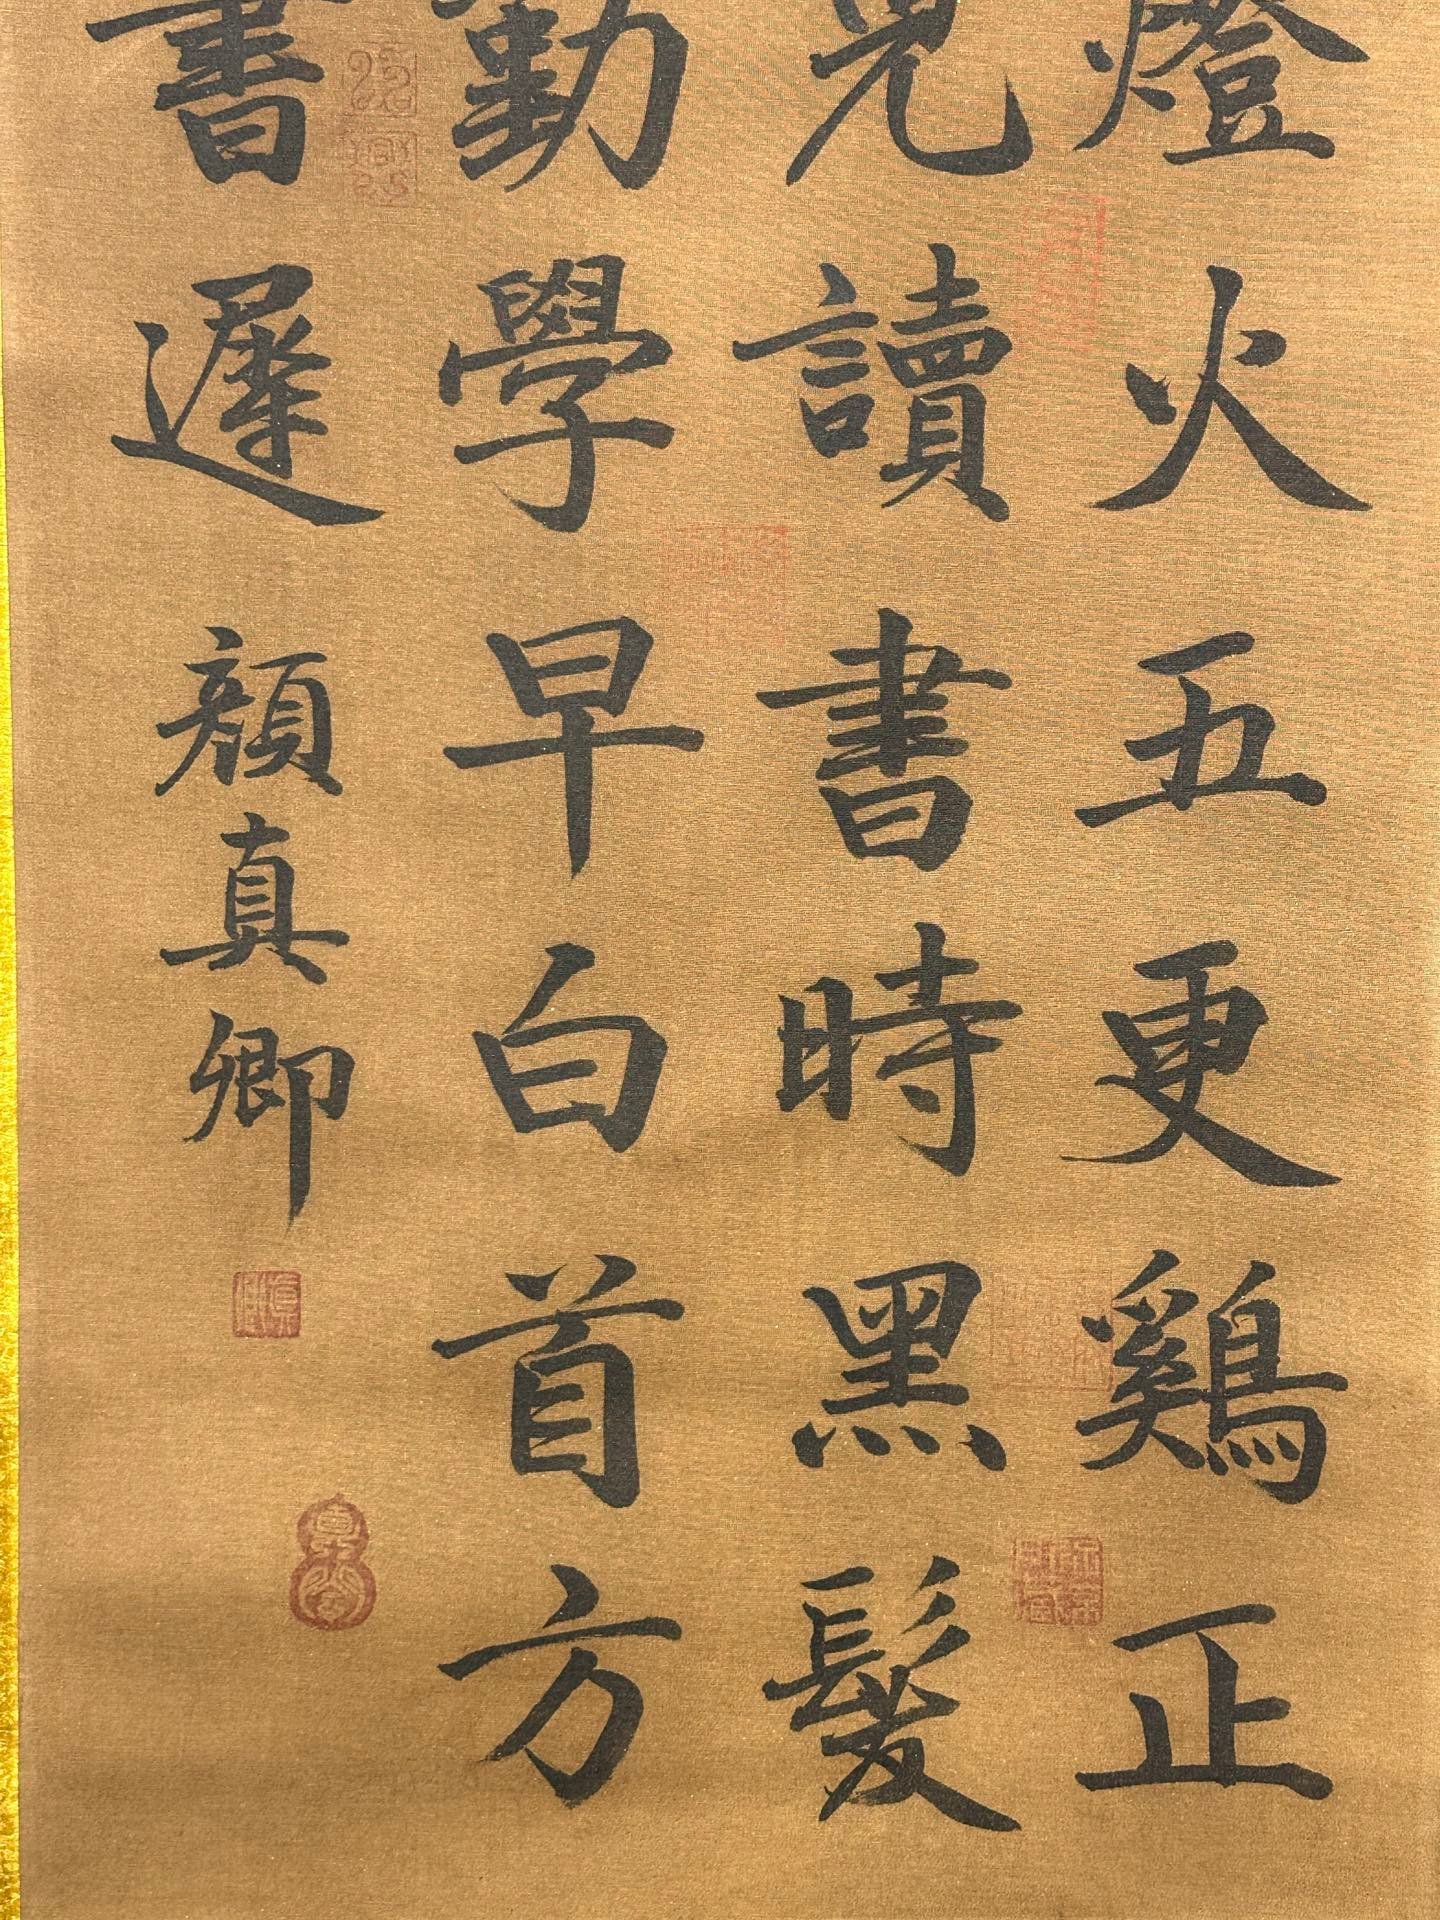 燈火五更鷄正
兒讀書時黑髮
勤學早白首方
書遲 顏真卿